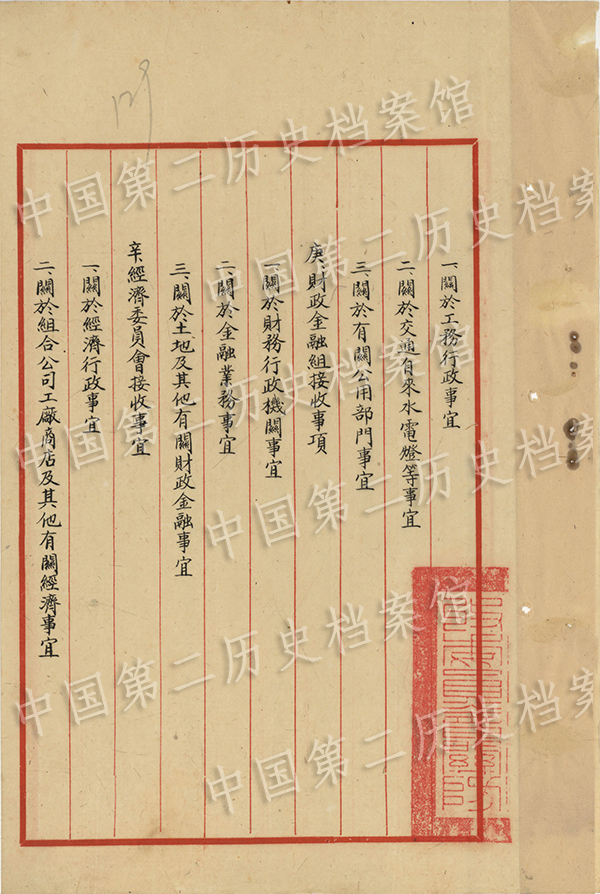 一、關於工務行政事宜
二、關於交通自來水電燈等事宜
三、關於有關公用部門事宜
庚、財政金融組接收事項
一、關於財務行政機關事宜
二、關於金融業務事宜
三、關於土地及其他有關財政金融事宜
辛、經濟委員會接收事宜
一、關於經濟行政事宜
二、關於組合公司工廠商店及其他有關經濟事宜
中国第二历史档案馆
中国第二历史档案馆
中国第二历史档案馆
中国第二历史档案馆
中国第二历史档案馆
中国第二历史档案馆
中国第二历史档案馆
中国第二历史档案馆